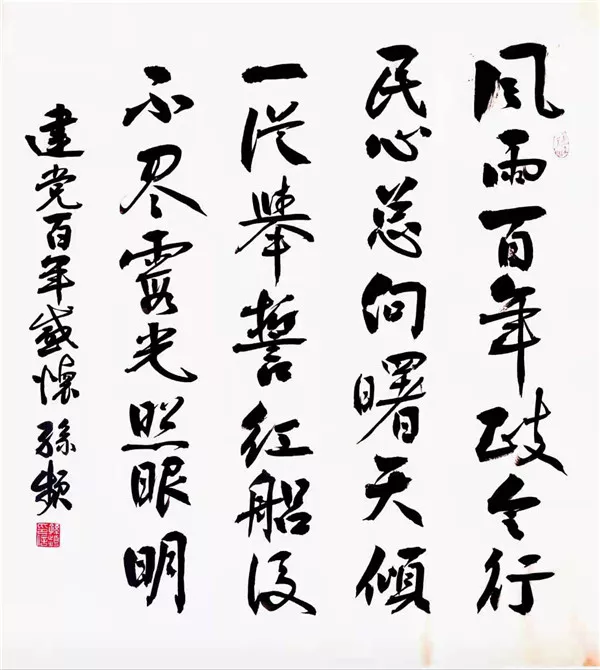 风雨百年政令行
民心总向曙天倾
一从舉誓红船後
不尽霞光照眼明
建党百年感懷 孫频